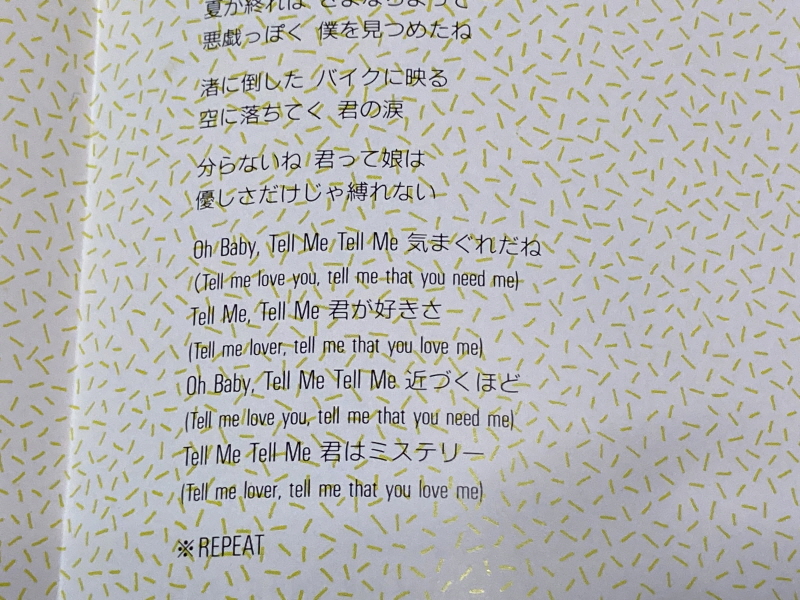 夏が終れば さよならよって
悪戯っぽく 僕を見つめたね
渚に倒した バイクに映る
空に落ちてく 君の涙
分らないね 君って娘は
優しさだけじゃ縛れない
Oh Baby, Tell Me Tell Me 気まぐれだね
(Tell me love you, tell me that you need me)
Tell Me, Tell Me 君が好きさ
(Tell me lover, tell me that you love me)
Oh Baby, Tell Me Tell Me 近づくほど
(Tell me love you, tell me that you need me)
Tell Me Tell Me 君はミステリー
(Tell me lover, tell me that you love me)
※REPEAT